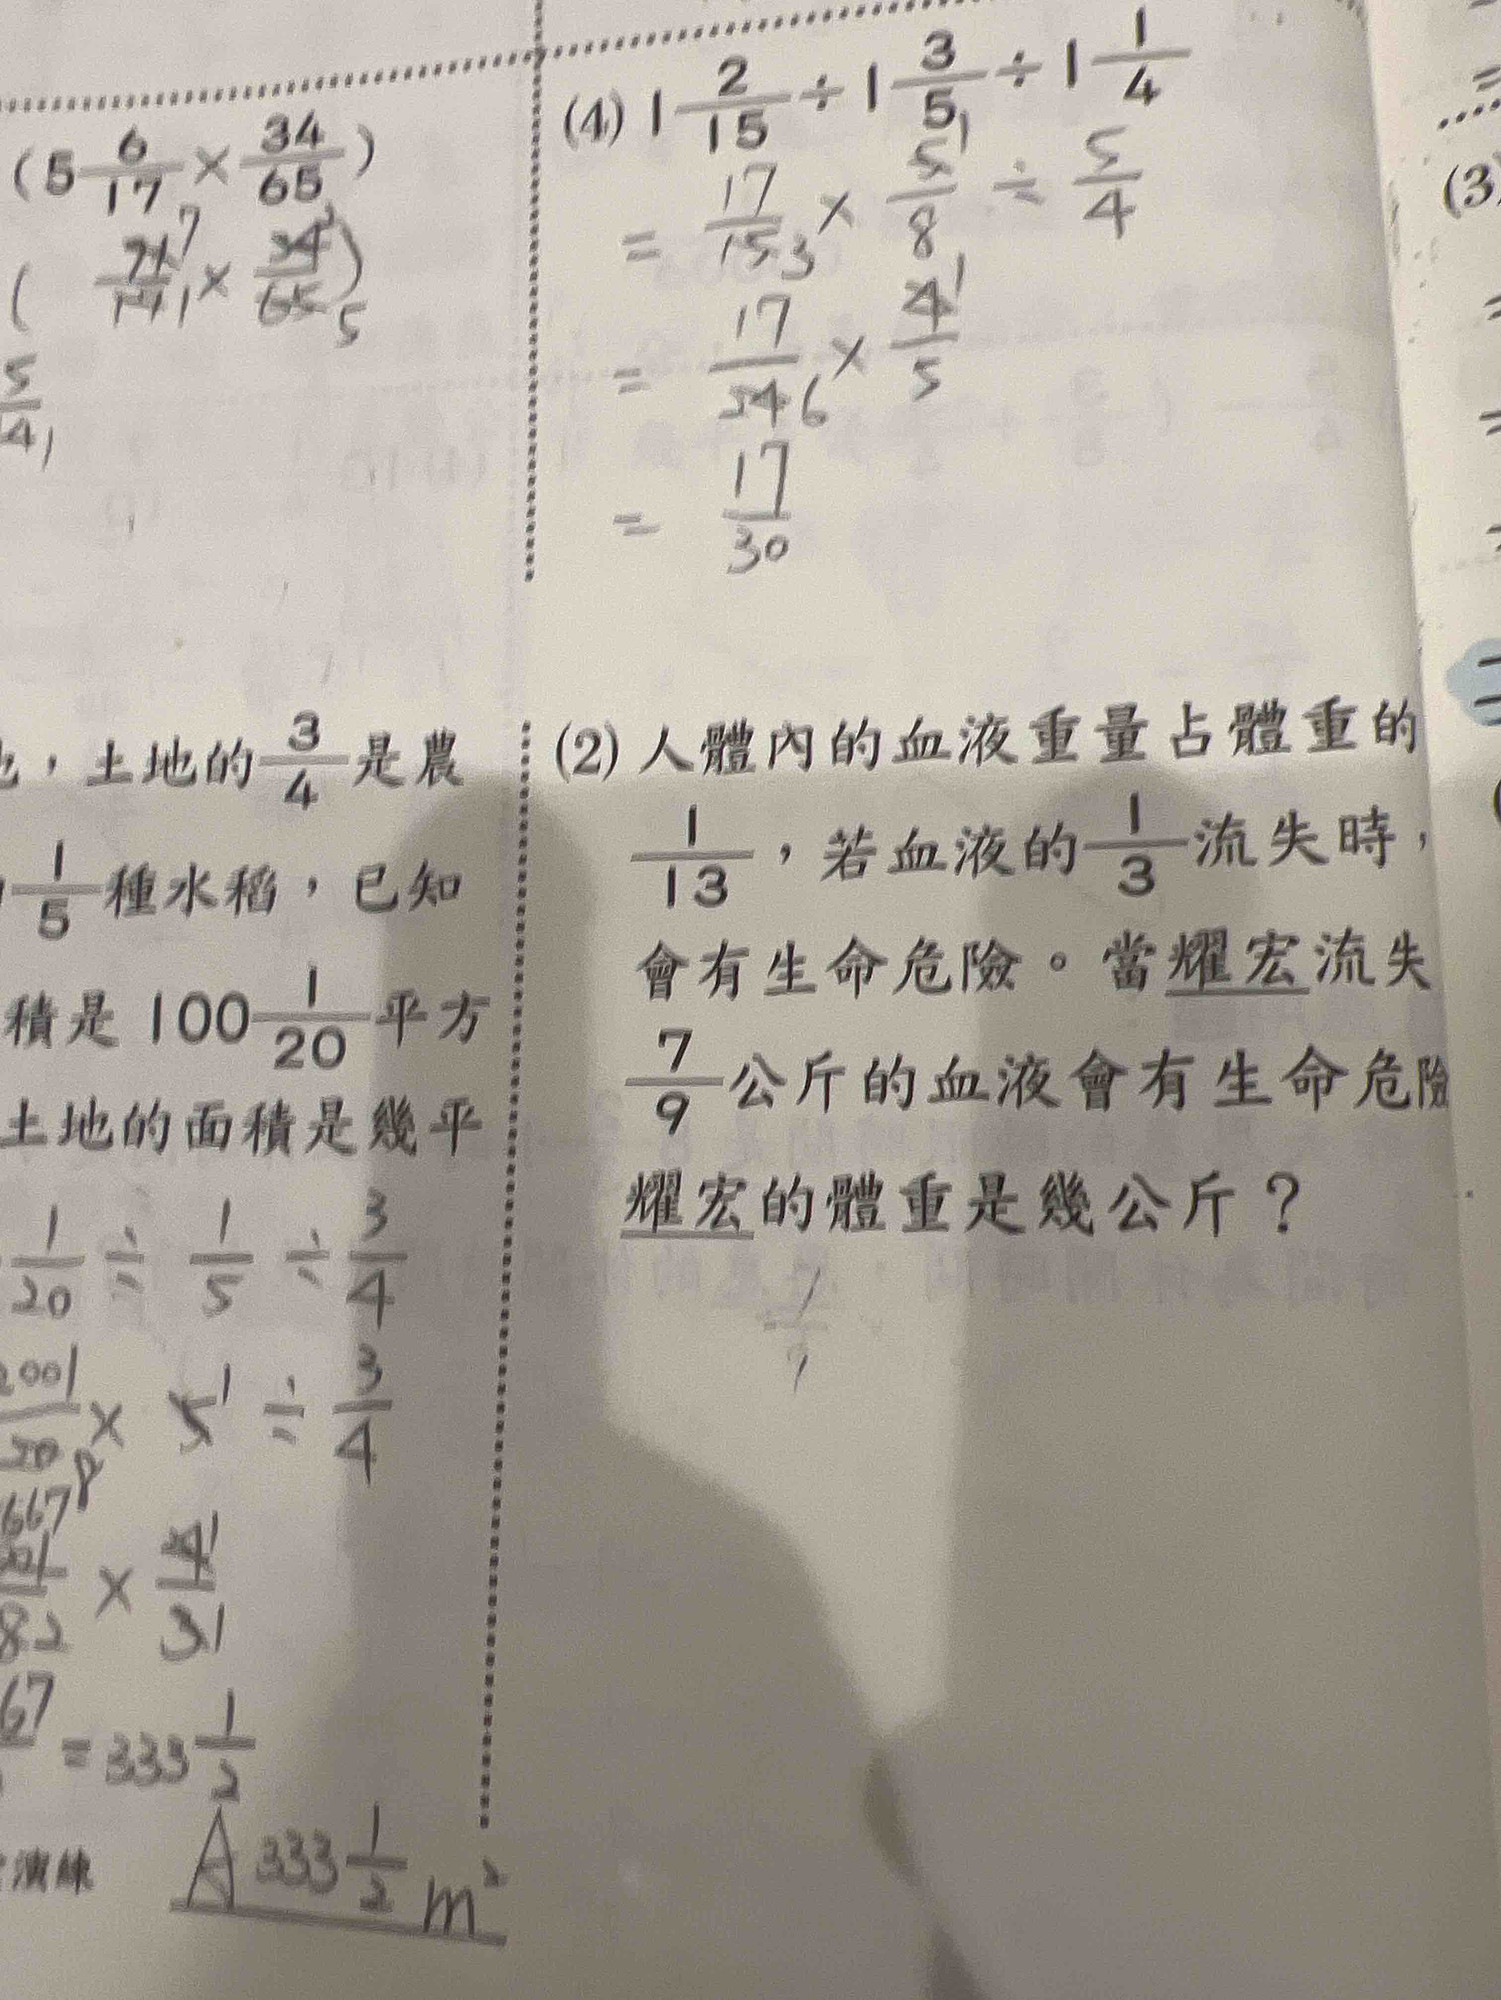 (5 6/17 × 34/65)
5/4 1
(4) 1 2/15 ÷ 1 3/5 ÷ 1 1/4
= 17/15 3 × 5 1/8 ÷ 5/4
= 17/24 6 × 4 1/5
= 17/30
(3)
，土地的 3/4 是農
1/5 種水稻，已知
積是 100 1/20 平方
土地的面積是幾平
1/20 ÷ 1/5 ÷ 3/4
2001/20 × 5 1 ÷ 3/4
667
× 4 1/3 1
67 = 333 1/2
A 333 1/2 m²
演練
(2) 人體內的血液重量占體重的
1/13，若血液的 1/3 流失時，
會有生命危險。當耀宏流失
7/9 公斤的血液會有生命危險
耀宏的體重是幾公斤？